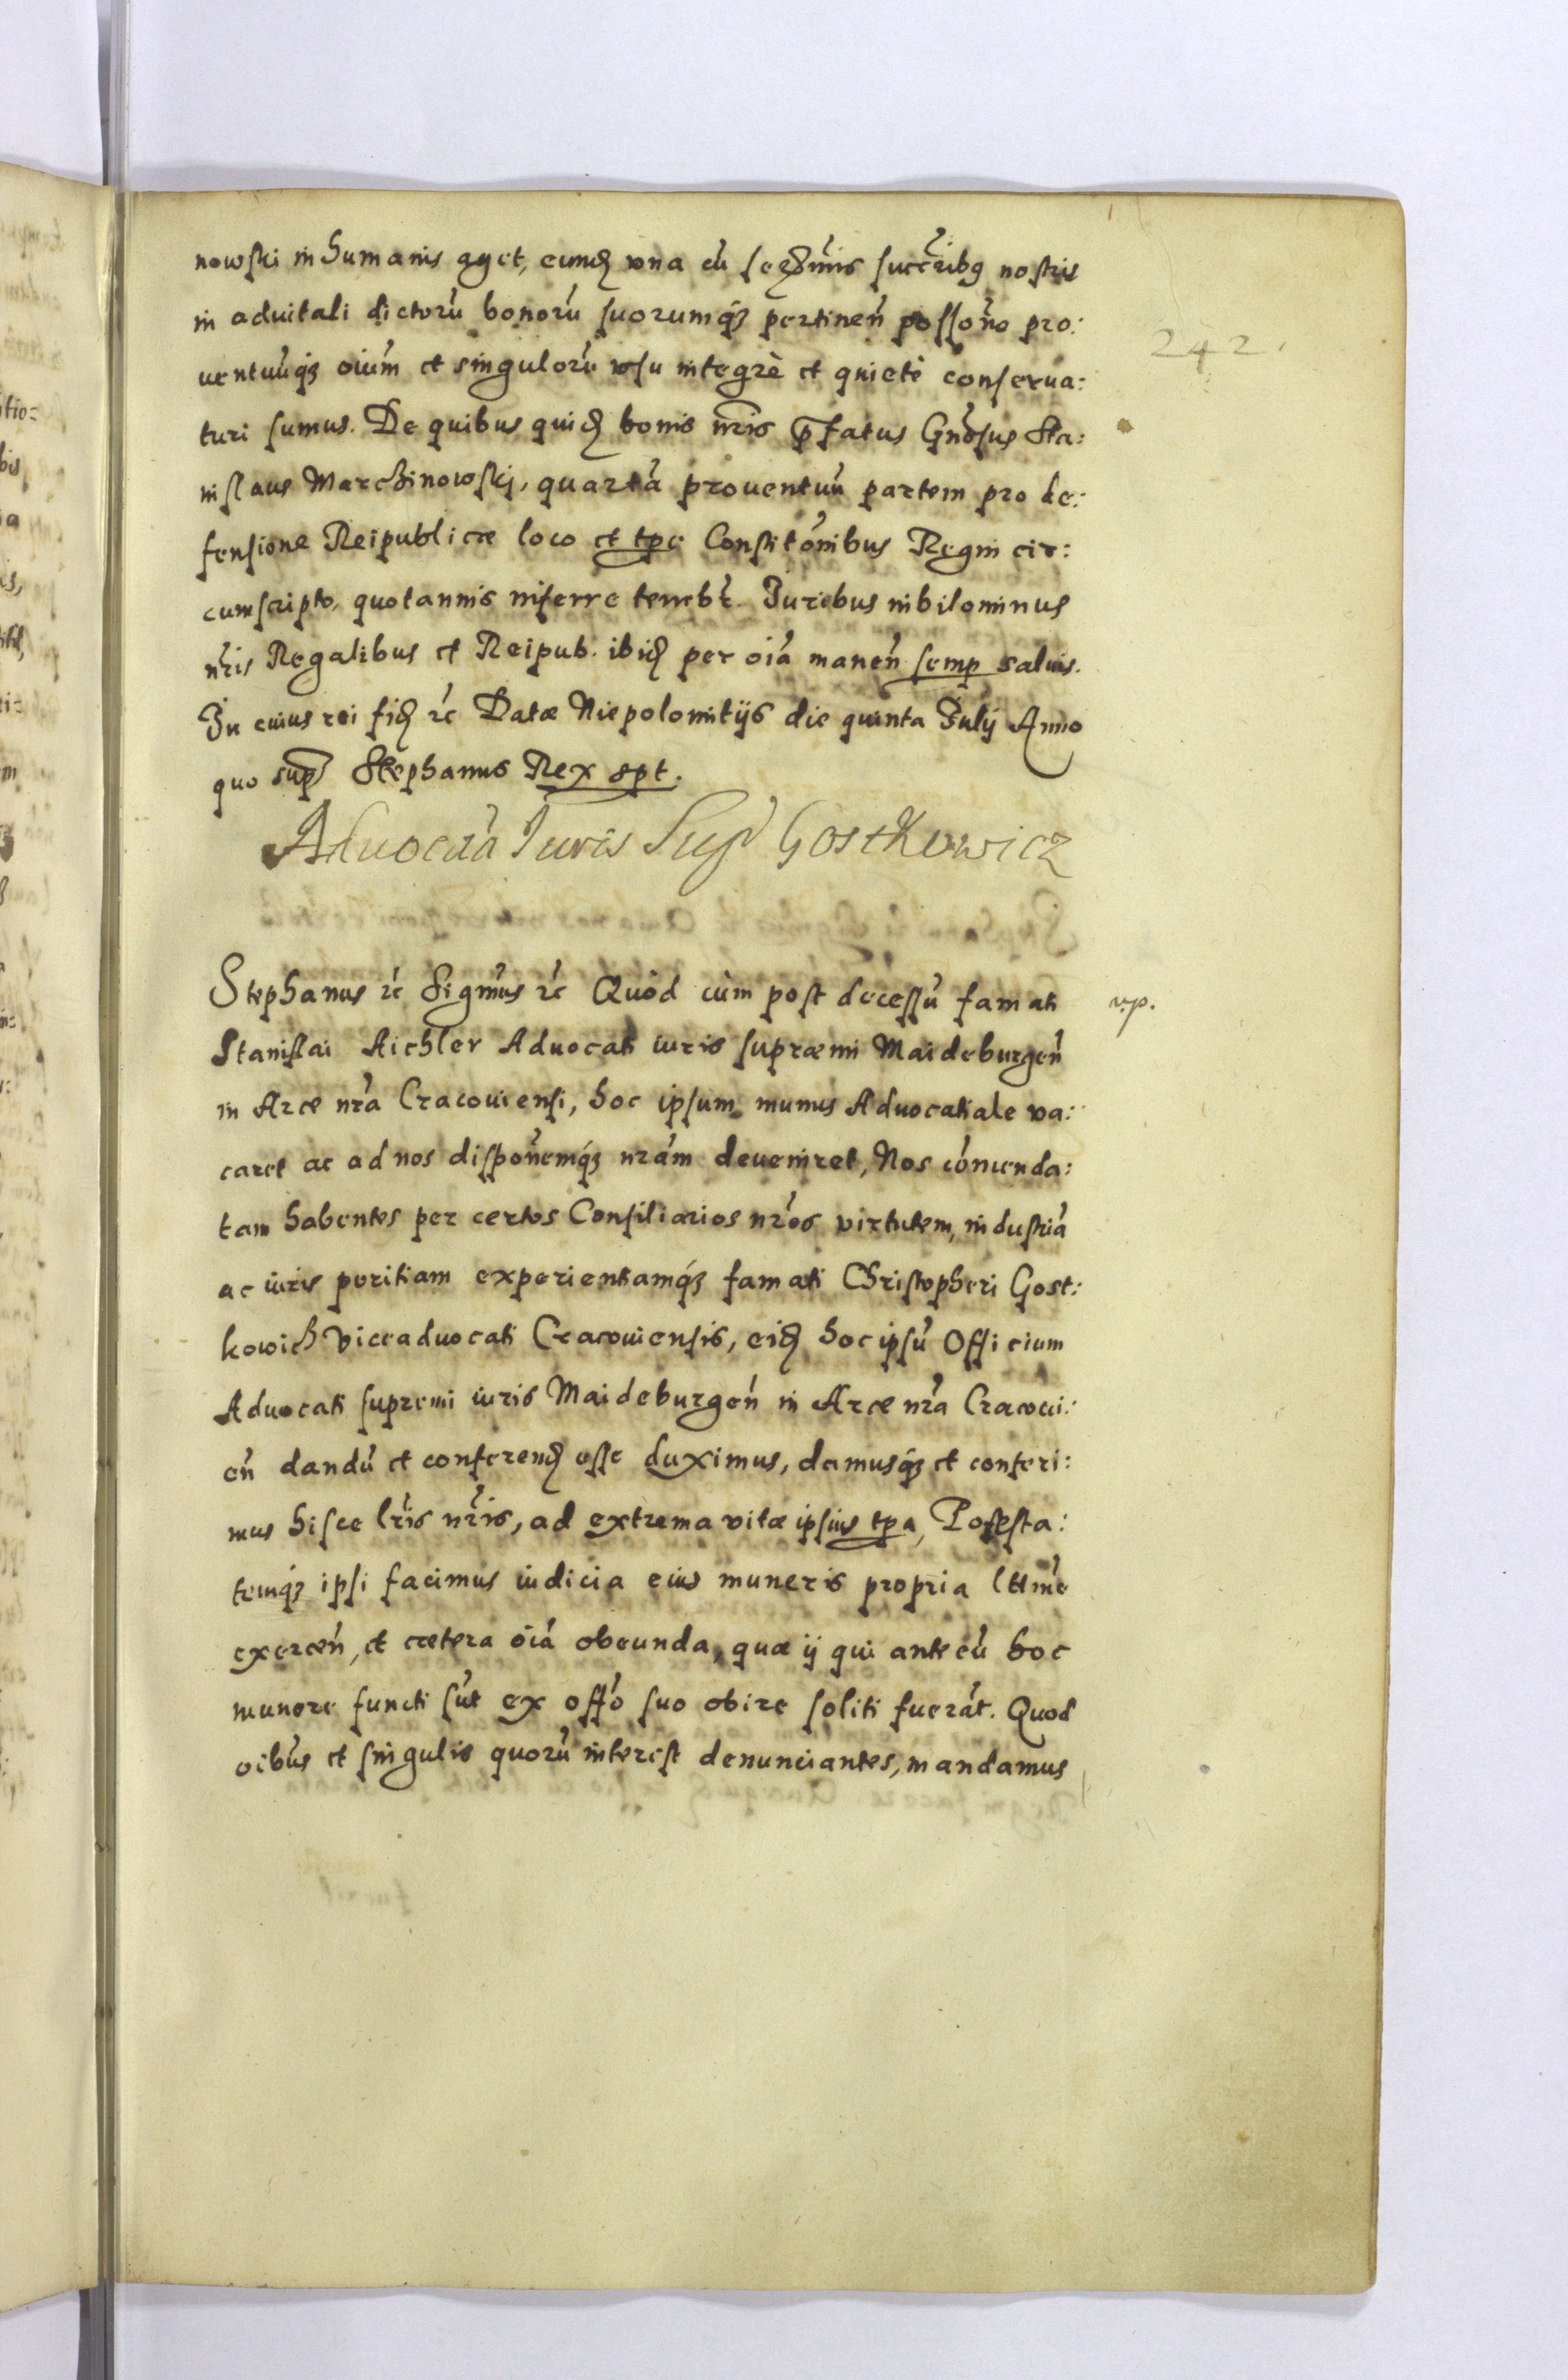 nowski in humanis aget, eundẽ vna cũ serenmis succribg nostris
in aduitali dictorũ bonorũ suorumq́3 pertinen̄ possōne pro:
uentuūq́3 oiūm et singulorũ vsu integrè et quietè conserua:
turi sumus. De quibus quidẽ bonis nr̄is p̄fatus Gnōsus Sta:
nislaus Marchinowskj, quartā prouentuū partem pro de:
fensione Reipublicæ loco et tp̱e Constitōnibus Regni cir:
cumscripto, quotannis inferre tenebr̃. Iuribus nihilominus
nr̃is Regalibus et Reipub. ibidẽ per oiā manen̄ semp̱ saluis.
In cuius rei fidẽ rc̃ Datæ Niepolomitijs die quinta Iulij Anno
quo sup̱ Stephanus Rex sp̱t.
242.
Aduocatiā Iuris Sup̱ Gostkowicz
Stephanus rc̃ Signm̃us rc̃ Quòd cùm post decessū famati
v.p.
Stanislai Aichler Aduocati iuris supræmi Maideburgen̄
in Arce nr̃a Cracouiensi, hoc ipsum munus Aduocatiale va:
caret ac ad nos dispōnemq́3 nr̃am deueniret, Nos cōmenda:
tam habentes per certos Consiliarios nr̃os virtutem, industriā
ac iuris peritiam experientiamq́3 famati Christopheri Gost:
kowich Viceaduocati Cracouiensis, eidẽ hoc ipsū Officium
Aduocati supremi iuris Maideburgen̄ in Arce nr̃a Cracoui:
en̄ dandū et conferendẽ esse duximus, damusq́3 et conferi:
mus hisce lr̃is nr̃is, ad extrema vitæ ipsius tp̱a, Potesta:
temq́3 ipsi facimus iudicia eius muneris propria lttm̄e
exercen̄, et cætera oiā obeunda, quæ ij qui ante eū hoc
munere functi sūt ex offō suo obire soliti fuerāt. Quod
oibus et singulis quorū interest denunciantes, mandamus